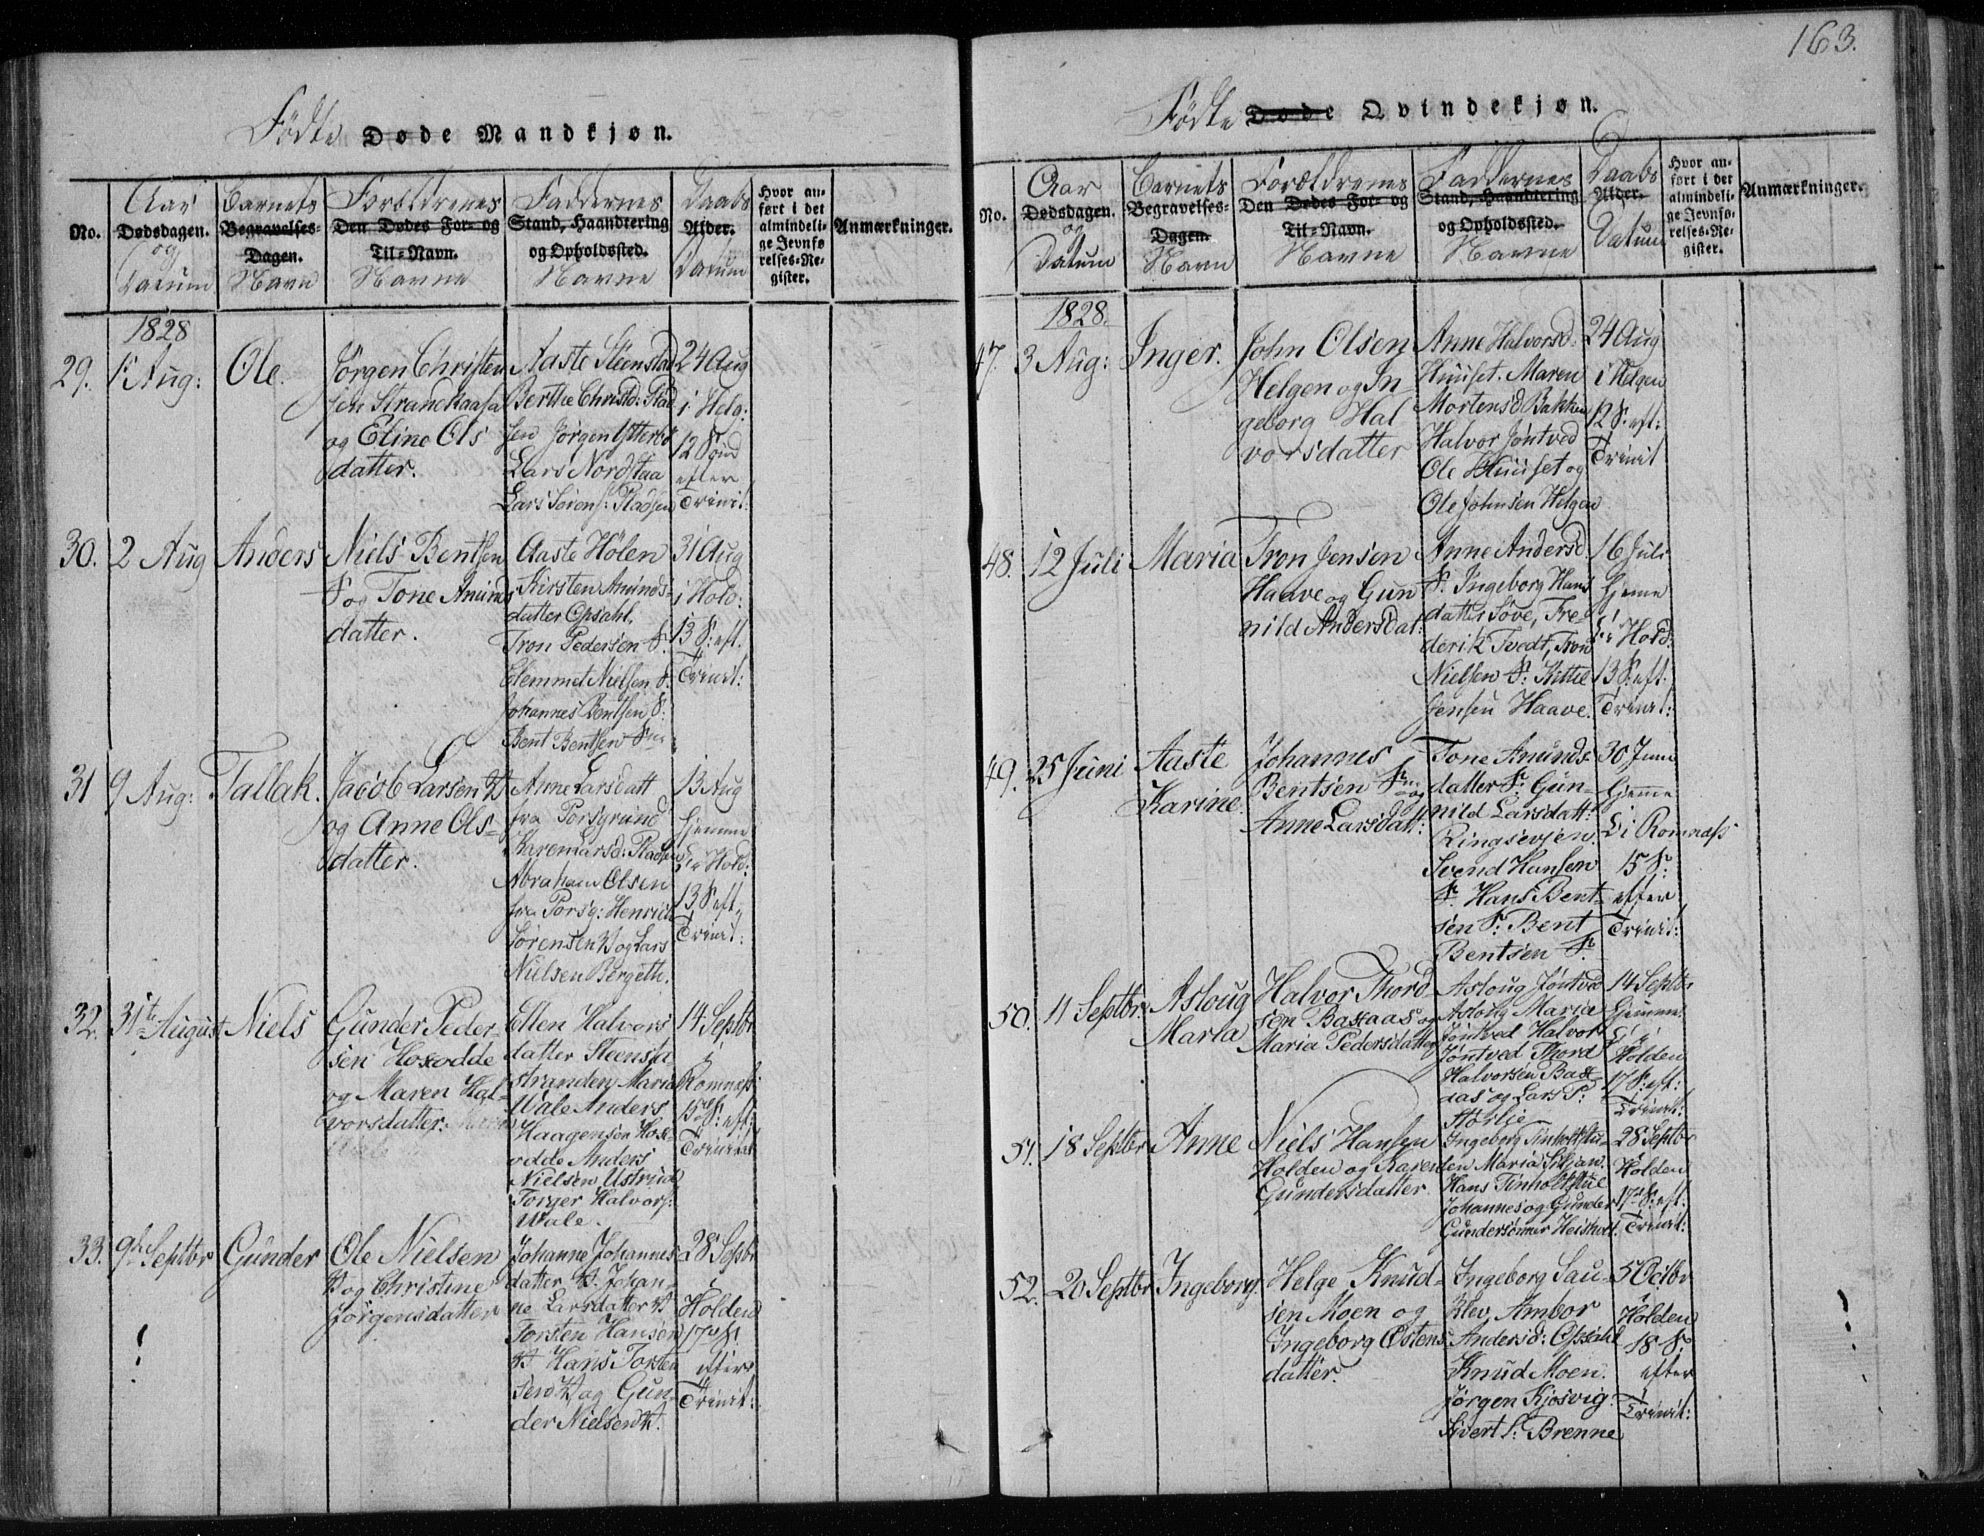 163.
Födte Døde Mandkjøn.
No.
Aar
Dødsdagen.
og
Datum
Barnets
Begravelses-
Dagen.
Navn
Forældrenes
Den Dødes For- og
Til-Navn.
Navne
Faddernes
Stand, Haandtering
og Opholdssted.
Navne
Daabs
Alder.
Datum
Hvor an-
ført i det
almindeli-
ge Jevnfø
relses-Re-
gister.
Anmærkninger.
1828
29.
1 Aug:
Ole.
Jørgen Christen
sen Strandkaasa
og Eline Ols
datter.
Aaste Steenstad
Berthe Christd: Plad
sen Jørgen Ytterbø
Lars Nordstaa
Lars Sørens: Pladsen
24 Aug
i Helg:
12 Sönd
efter
Trinit:
30.
2 Aug
Anders
Niels Bentsen
S og Tone Amund
datter.
Aaste Hølen
Kirsten Amunds-
datter Opsahl.
Tron Pedersen S:
Clemmet Nielsen S:
Johannes Bentsen S:
Bent Bentsen
31 Aug
i Hold:
13 S: eft.
Trinit:
31
9 Aug:
Tallak.
Jacob Larsen V
og Anne Ols-
datter.
Anne Larsdatt
fra Porsgrund
Karen Larsd: Pladsen
Abraham Olsen
fra Porsg: Henrich
Sørensen V og Lars
Nielsen Bergeth.
13 Aug
hjemme
i Hold:
13 S. eft.
Trinit:
32.
31te August
Niels
Gunder Peder-
sen Hoxodde
og Maren Hal-
vorsdatter:
Ellen Halvors
datter Steensta
stranden Maria
Wale Anders
Haagensen Hox-
odde Anders
Nielsen Ustrud
Torger Halvors:
Wale.
14 Septbr
i
Romnæs:
15de S: eft:
Trinit
33.
9de Septbr
Gunder
Ole Nielsen
V og Christine
Jörgensdatter
Johanne Johannes-
datter V. Johan-
ne Larsdatter V
Torsten Hansen
V Hans Torsten
sen V og Gun-
der Nielsen V.
28 Septbr
i
Holden
17de S:
efter
Trinit:
Födte Døde Qvindekjøn.
No.
Aar
Dødsdagen.
og
Datum
Barnets
Begravelses-
Dagen.
Navn
Forældrenes
Den Dødes For- og
Til-Navn.
Navne
Faddernes
Stand, Haandtering
og Opholdssted.
Navne
Daabs
Alder.
Datum
Hvor an-
ført i det
almindeli-
ge Jevnfø-
relses-Re-
gister.
Anmærkninger.
1828.
47.
3 Aug:
Inger.
John Olsen
Helgen og In
geborg Hal
vorsdatter
Anne Halvorsd:
Huuset. Maren
Mortensd Bakken
Halvor Jøntved
Ole Huuset og
Ole Johnsen Helgen
24 Aug
i Helgen
12 S. eft:
Trinit
48.
12 Juli
Maria
Tron Jensen
Haave og Gun
nild Andersdat:
Anne Andersd.
S. Ingeborg Hans
datter Söve, Fre-
derik Tvedt, Tron
Nielsen S: Kittil
Jensen Haave.
16 Juli
hjeme
i Hold:
13 S: eft.
Trinit:
49.
25 Juni
Aaste
Karine.
Johannes
Bentsen og
Anne Larsdatt:
Tone Amunds-
datter S: Gun-
nild Larsdatt:
Ringsevjen.
Svend Hansen
S. Hans Bent-
sen S: Bent
Bentsen S.
30 Juni
hjeme
i Romnæs
15 S:
efter
Trinit:
50.
11 Septbr
Asloug
Maria
Halvor Thord-
sen Baxaas og
Maria Pedersdatter
Asloug Jøntved
Aslong Maria
Jøntved Halvor
Jøntved Thord
Halvorsen Bax-
aas og Lars P:
14 Septbr
hjemme
i
Holden
17 S: eft:
Trinit:
51.
18 Septbr
Anne
Niels Hansen
Holden og Karen
Gundersdatter
Ingeborg Tinholtstu-
en Maria Skjan.
Hans Tinholtstue
Johannes og Gunder
Gundersönner Heisholt.
28 Septbr
Holden
17de S: eft:
Trinit:
52.
20 Septbr
Ingeborg.
Helge Knud-
sen Moen og
Ingeborg Østens-
datter.
Ingeborg Sau-
klev, Ambor
Andersd: Opsahl
Knud Moen.
Jørgen Kjosvig.
Sivert S: Brenne
5 Octbr
i
Holden
18 S.
efter
Trinit: